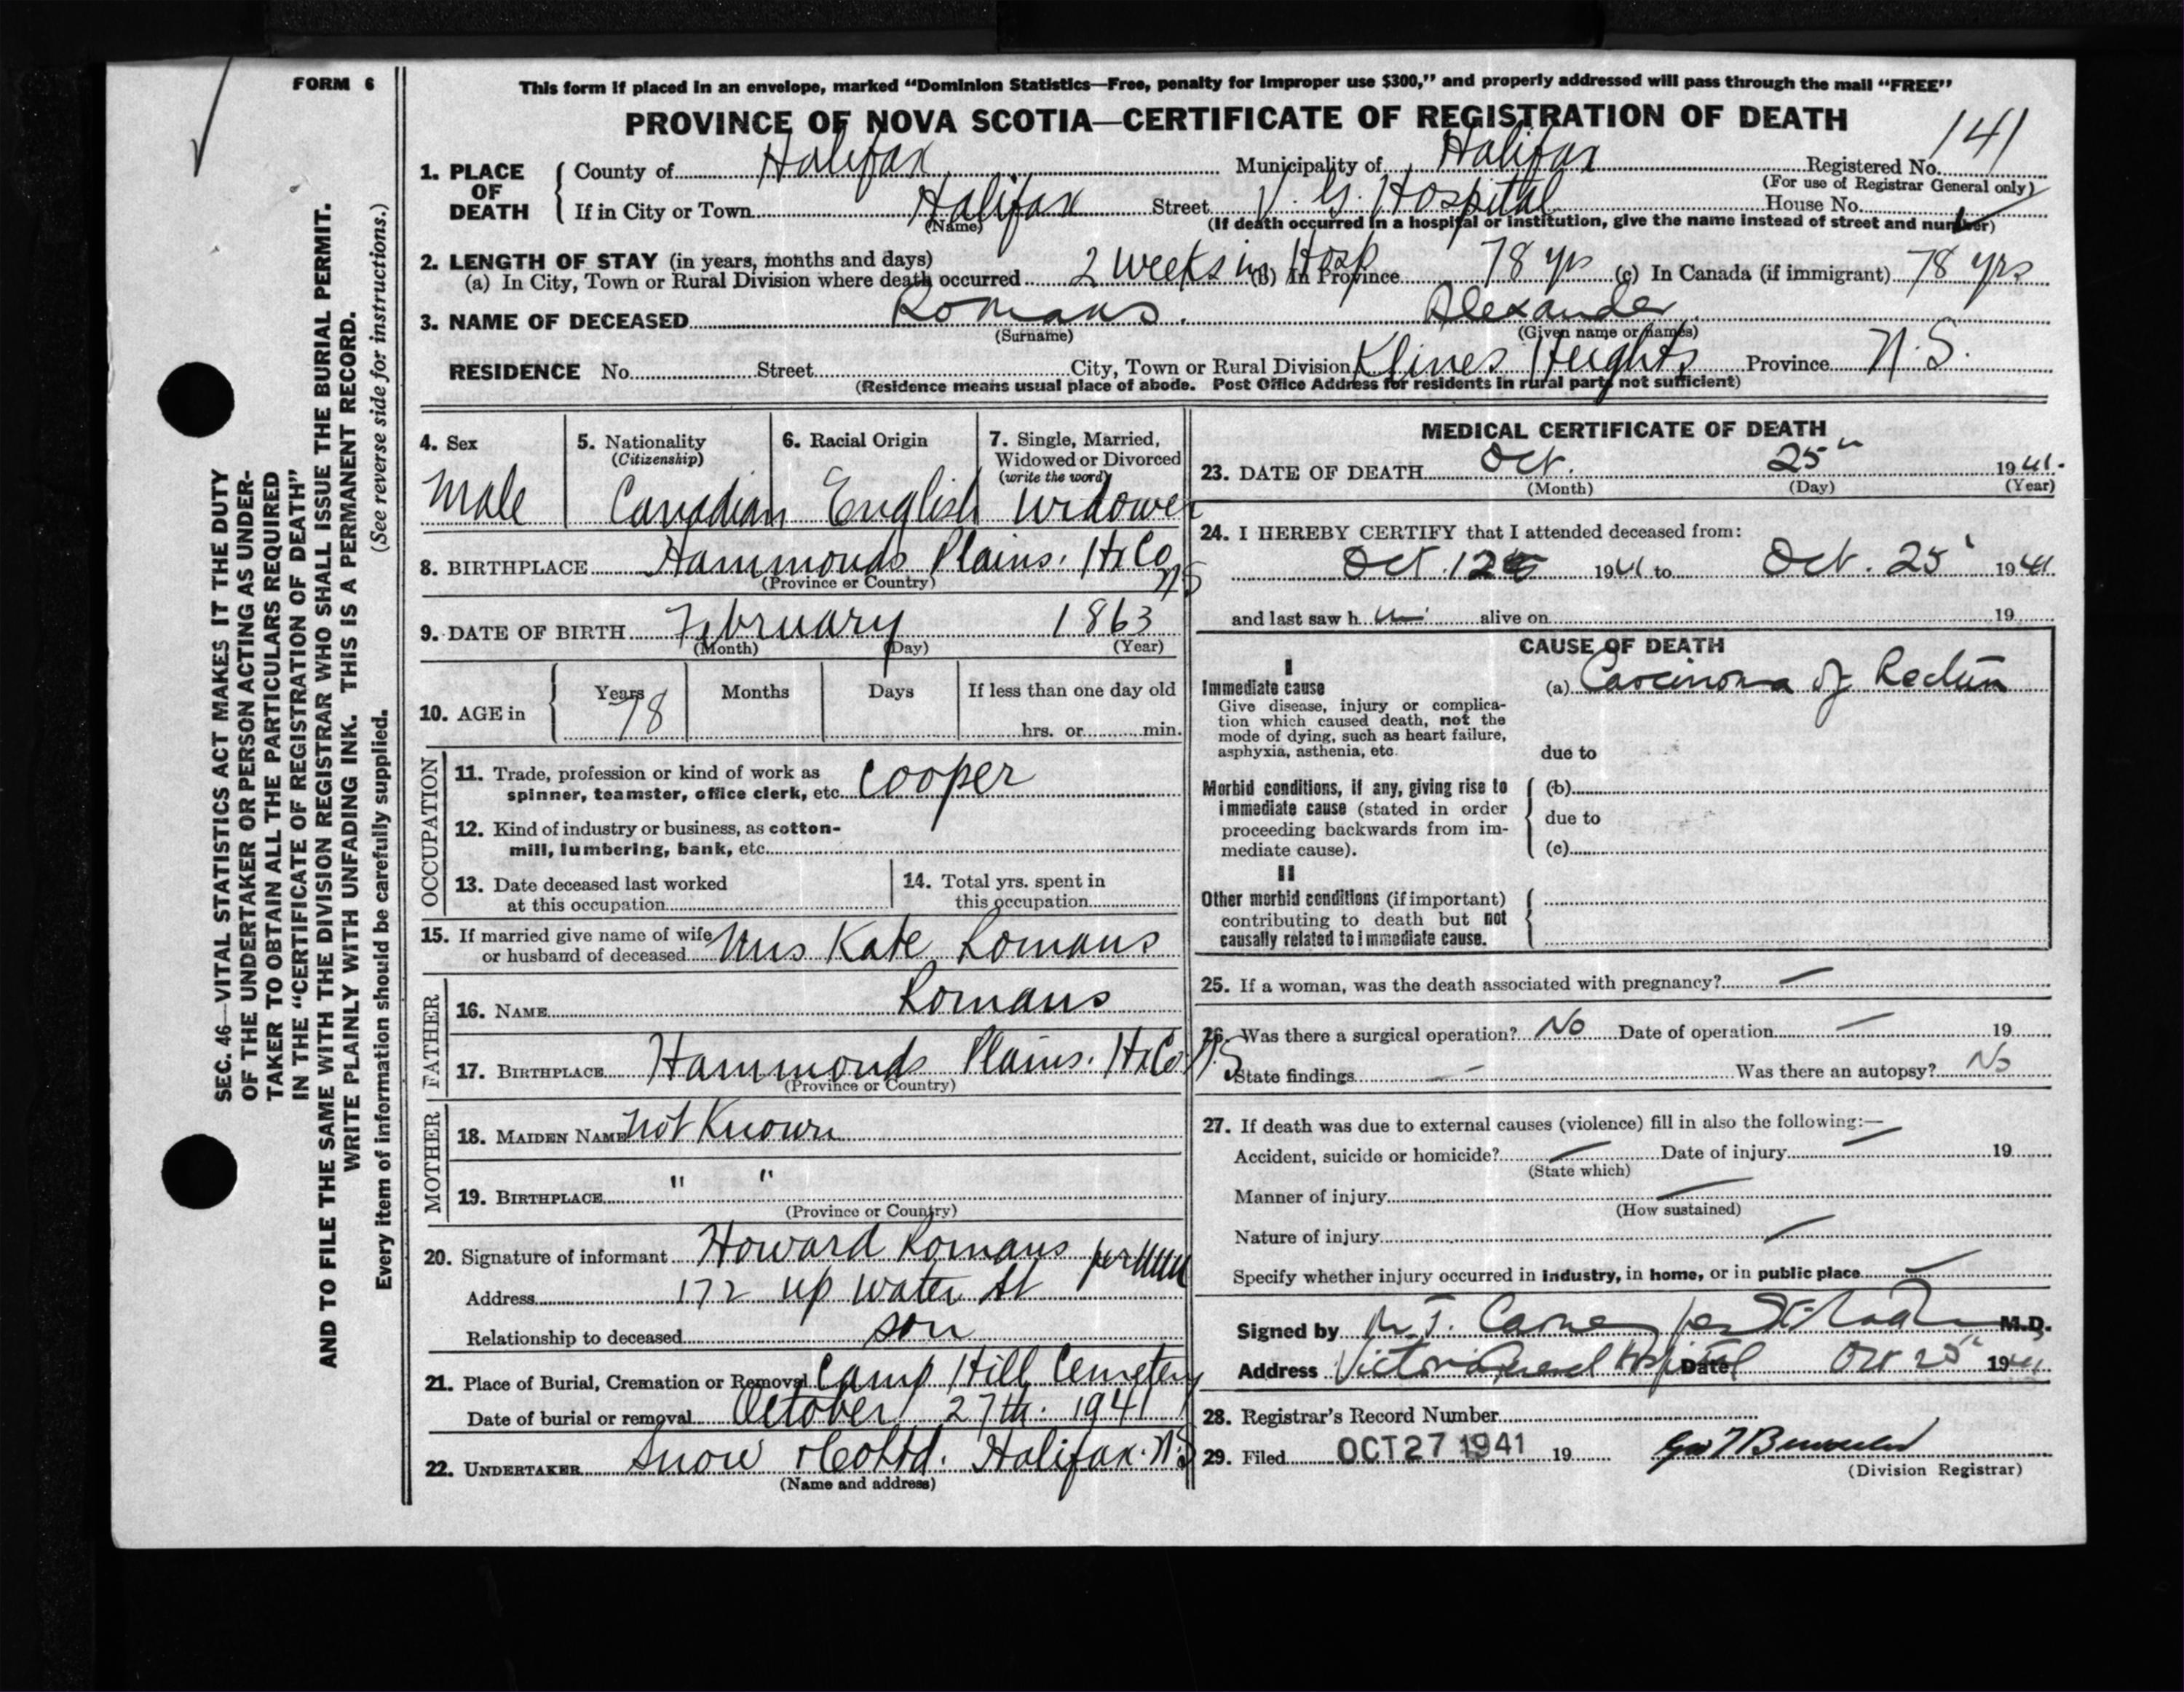 FORM 6
This form if placed in an envelope, marked "Dominion Statistics—Free, penalty for improper use $300," and properly addressed will pass through the mail "FREE"
PROVINCE OF NOVA SCOTIA—CERTIFICATE OF REGISTRATION OF DEATH
SEC. 46—VITAL STATISTICS ACT MAKES IT THE DUTY
OF THE UNDERTAKER OR PERSON ACTING AS UNDER-
TAKER TO OBTAIN ALL THE PARTICULARS REQUIRED
IN THE "CERTIFICATE OF REGISTRATION OF DEATH"
AND TO FILE THE SAME WITH THE DIVISION REGISTRAR WHO SHALL ISSUE THE BURIAL PERMIT.
WRITE PLAINLY WITH UNFADING INK. THIS IS A PERMANENT RECORD.
Every item of information should be carefully supplied. (See reverse side for instructions.)
1. PLACE OF DEATH County of Halifax Municipality of Halifax Registered No. 141
(For use of Registrar General only)
If in City or Town Halifax Street V. G. Hospital House No.
(Name) (If death occurred in a hospital or institution, give the name instead of street and number)
2. LENGTH OF STAY (in years, months and days)
(a) In City, Town or Rural Division where death occurred 2 weeks in Hosp (b) In Province 78 yrs (c) In Canada (if immigrant) 78 yrs
3. NAME OF DECEASED Romans. Alexander
(Surname) (Given name or names)
RESIDENCE No. Street City, Town or Rural Division Klines Heights Province N.S.
(Residence means usual place of abode. Post Office Address for residents in rural parts not sufficient)
4. Sex Male
5. Nationality (Citizenship) Canadian
6. Racial Origin English
7. Single, Married, Widowed or Divorced (write the word) widower
8. BIRTHPLACE Hammonds Plains. Hx Co NS
(Province or Country)
9. DATE OF BIRTH February 1863
(Month) (Day) (Year)
10. AGE in Years 78 Months Days If less than one day old
hrs. or min.
OCCUPATION
11. Trade, profession or kind of work as
spinner, teamster, office clerk, etc. Cooper
12. Kind of industry or business, as cotton-
mill, lumbering, bank, etc.
13. Date deceased last worked
at this occupation
14. Total yrs. spent in
this occupation
15. If married give name of wife
or husband of deceased Mrs Kate Romans
FATHER
16. NAME Romans
17. BIRTHPLACE Hammonds Plains. Hx Co N.S
(Province or Country)
MOTHER
18. MAIDEN NAME not Known
19. BIRTHPLACE " "
(Province or Country)
20. Signature of informant Howard Romans per
Address 172 up water St
Relationship to deceased son
21. Place of Burial, Cremation or Removal Camp Hill Cemetery
Date of burial or removal October 27th. 1941
22. UNDERTAKER Snow & Co Ltd. Halifax. N.S
(Name and address)
MEDICAL CERTIFICATE OF DEATH
23. DATE OF DEATH Oct. 25" 1941.
(Month) (Day) (Year)
24. I HEREBY CERTIFY that I attended deceased from:
Oct. 12 1941 to Oct. 25 1941
and last saw h im alive on 19
CAUSE OF DEATH
I
Immediate cause (a) Carcinoma of Rectum
Give disease, injury or complica-
tion which caused death, not the
mode of dying, such as heart failure,
asphyxia, asthenia, etc. due to
Morbid conditions, if any, giving rise to (b)
immediate cause (stated in order due to
proceeding backwards from im-
mediate cause). (c)
II
Other morbid conditions (if important)
contributing to death but not
causally related to immediate cause.
25. If a woman, was the death associated with pregnancy? —
26. Was there a surgical operation? No Date of operation — 19
State findings — Was there an autopsy? No
27. If death was due to external causes (violence) fill in also the following:—
Accident, suicide or homicide? — Date of injury — 19
(State which)
Manner of injury —
(How sustained)
Nature of injury —
Specify whether injury occurred in industry, in home, or in public place —
Signed by per M.D.
Address Victoria General Hospital Date Oct 25" 1941
28. Registrar's Record Number
29. Filed OCT 27 1941 19
(Division Registrar)